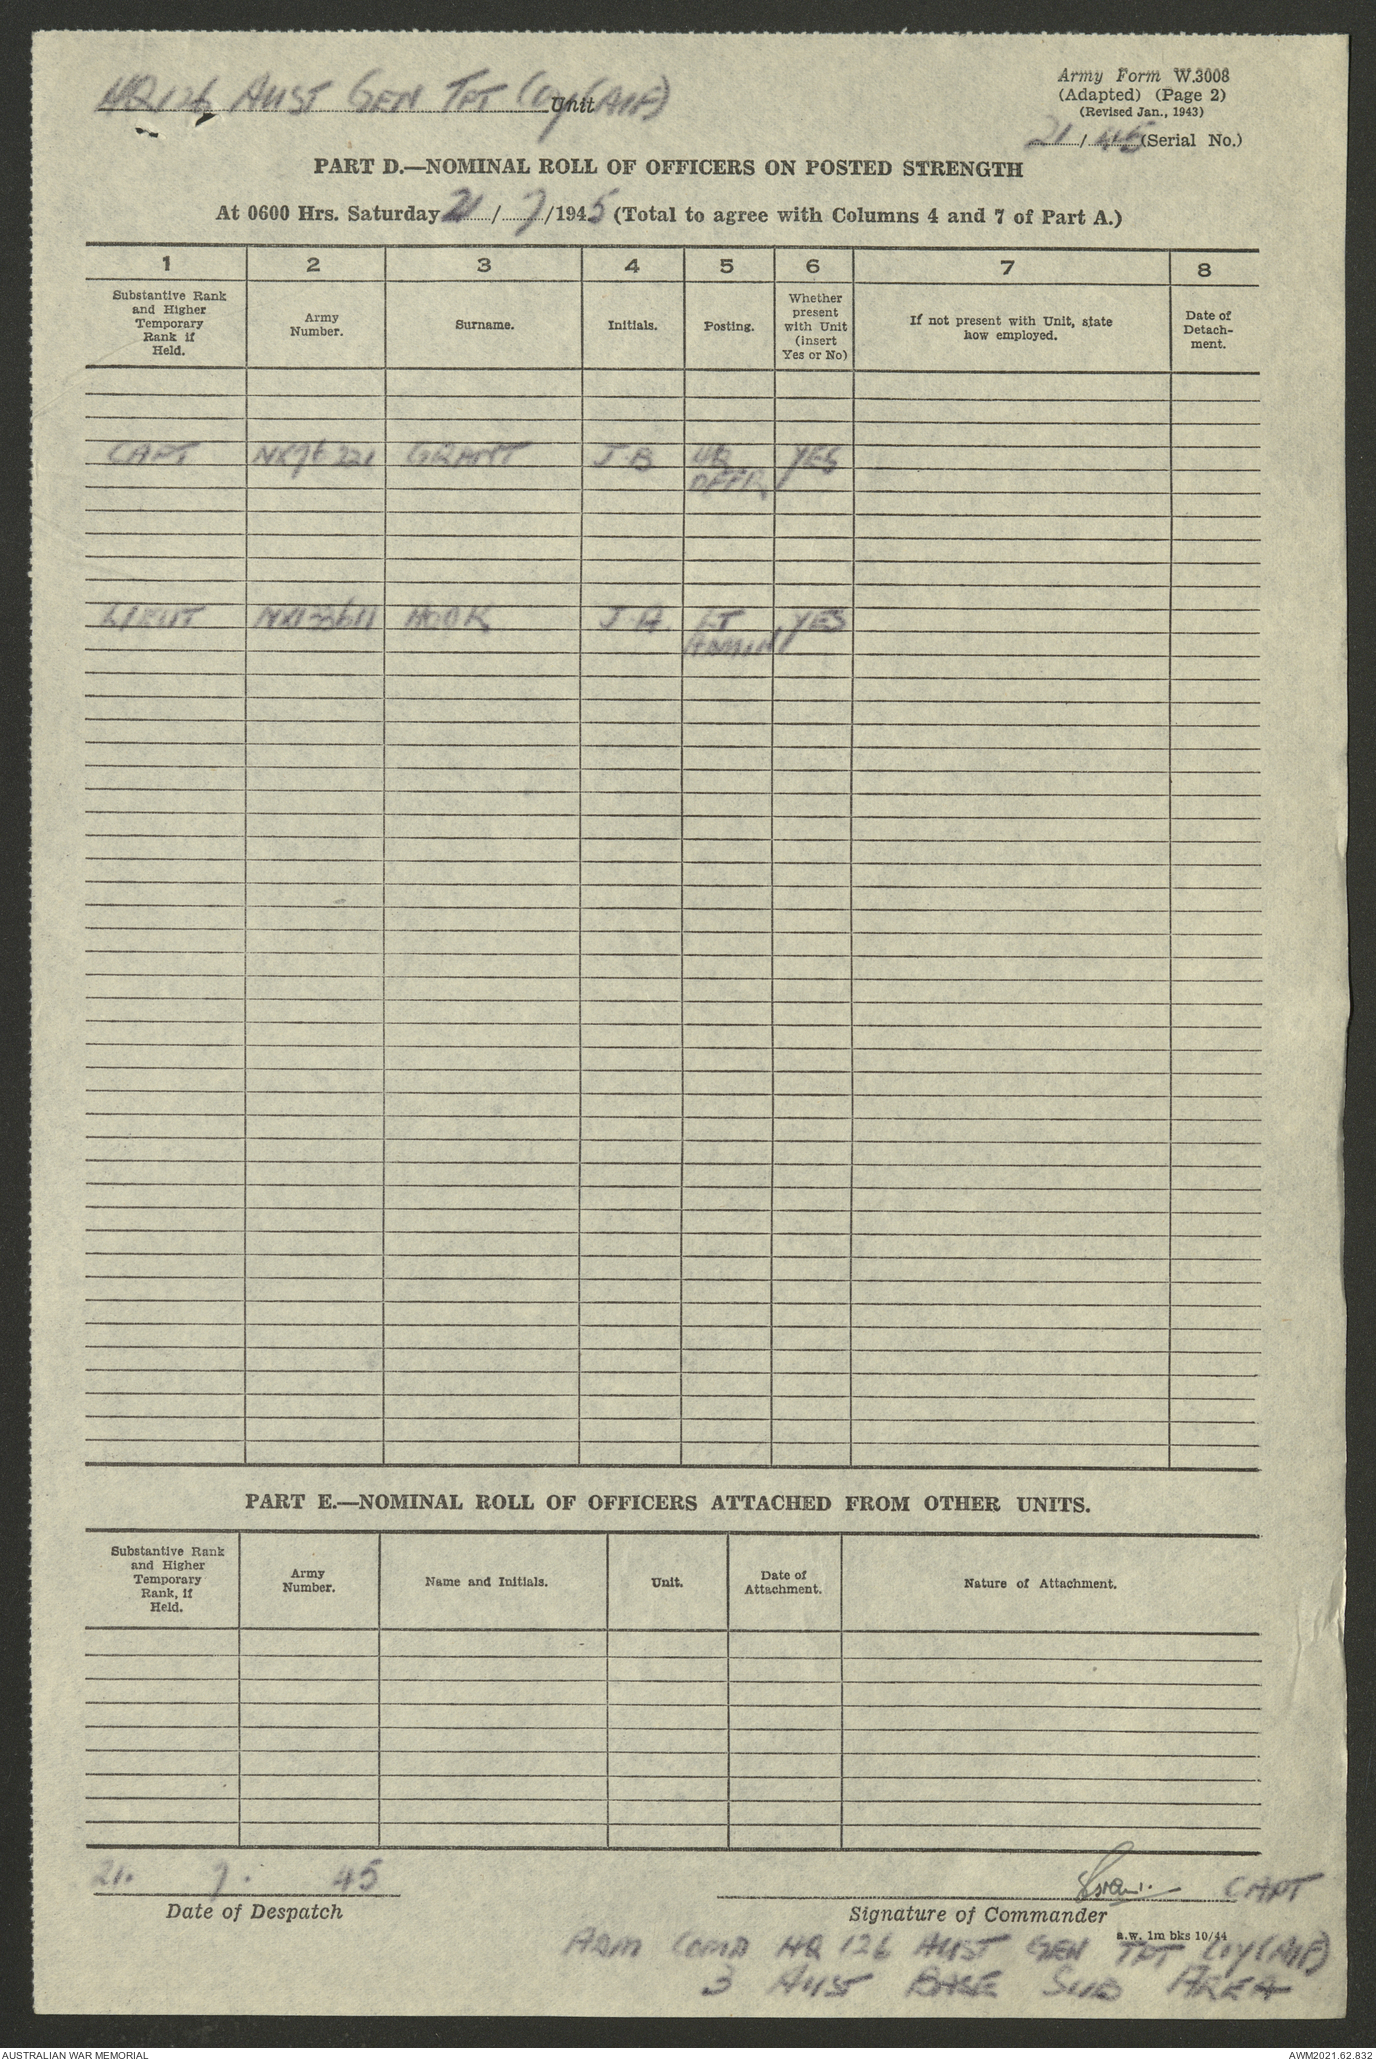 HQ 126 AUST GEN TPT Coy (AIF) Unit
Army Form W.3008
(Adapted) (Page 2)
(Revised Jan., 1943)
21/45 (Serial No.)
PART D.—NOMINAL ROLL OF OFFICERS ON POSTED STRENGTH
At 0600 Hrs. Saturday 21/7/1945 (Total to agree with Columns 4 and 7 of Part A.)
1 2 3 4 5 6 7 8
Substantive Rank and Higher Temporary Rank if Held. Army Number. Surname. Initials. Posting. Whether present with Unit (insert Yes or No) If not present with Unit, state how employed. Date of Detach-ment.
CAPT NX76221 GRANT J B HQ YES
OFFR
LIEUT NX133611 HOOK J A. LT YES
ADMIN
PART E.—NOMINAL ROLL OF OFFICERS ATTACHED FROM OTHER UNITS.
Substantive Rank and Higher Temporary Rank, if Held. Army Number. Name and Initials. Unit. Date of Attachment. Nature of Attachment.
21. 7. 45 CAPT
Date of Despatch Signature of Commander
a.w. 1m bks 10/44
ADM COMD HQ 126 AUST GEN TPT Coy (AIF)
3 AUST BASE SUB AREA
AUSTRALIAN WAR MEMORIAL AWM2021.62.832